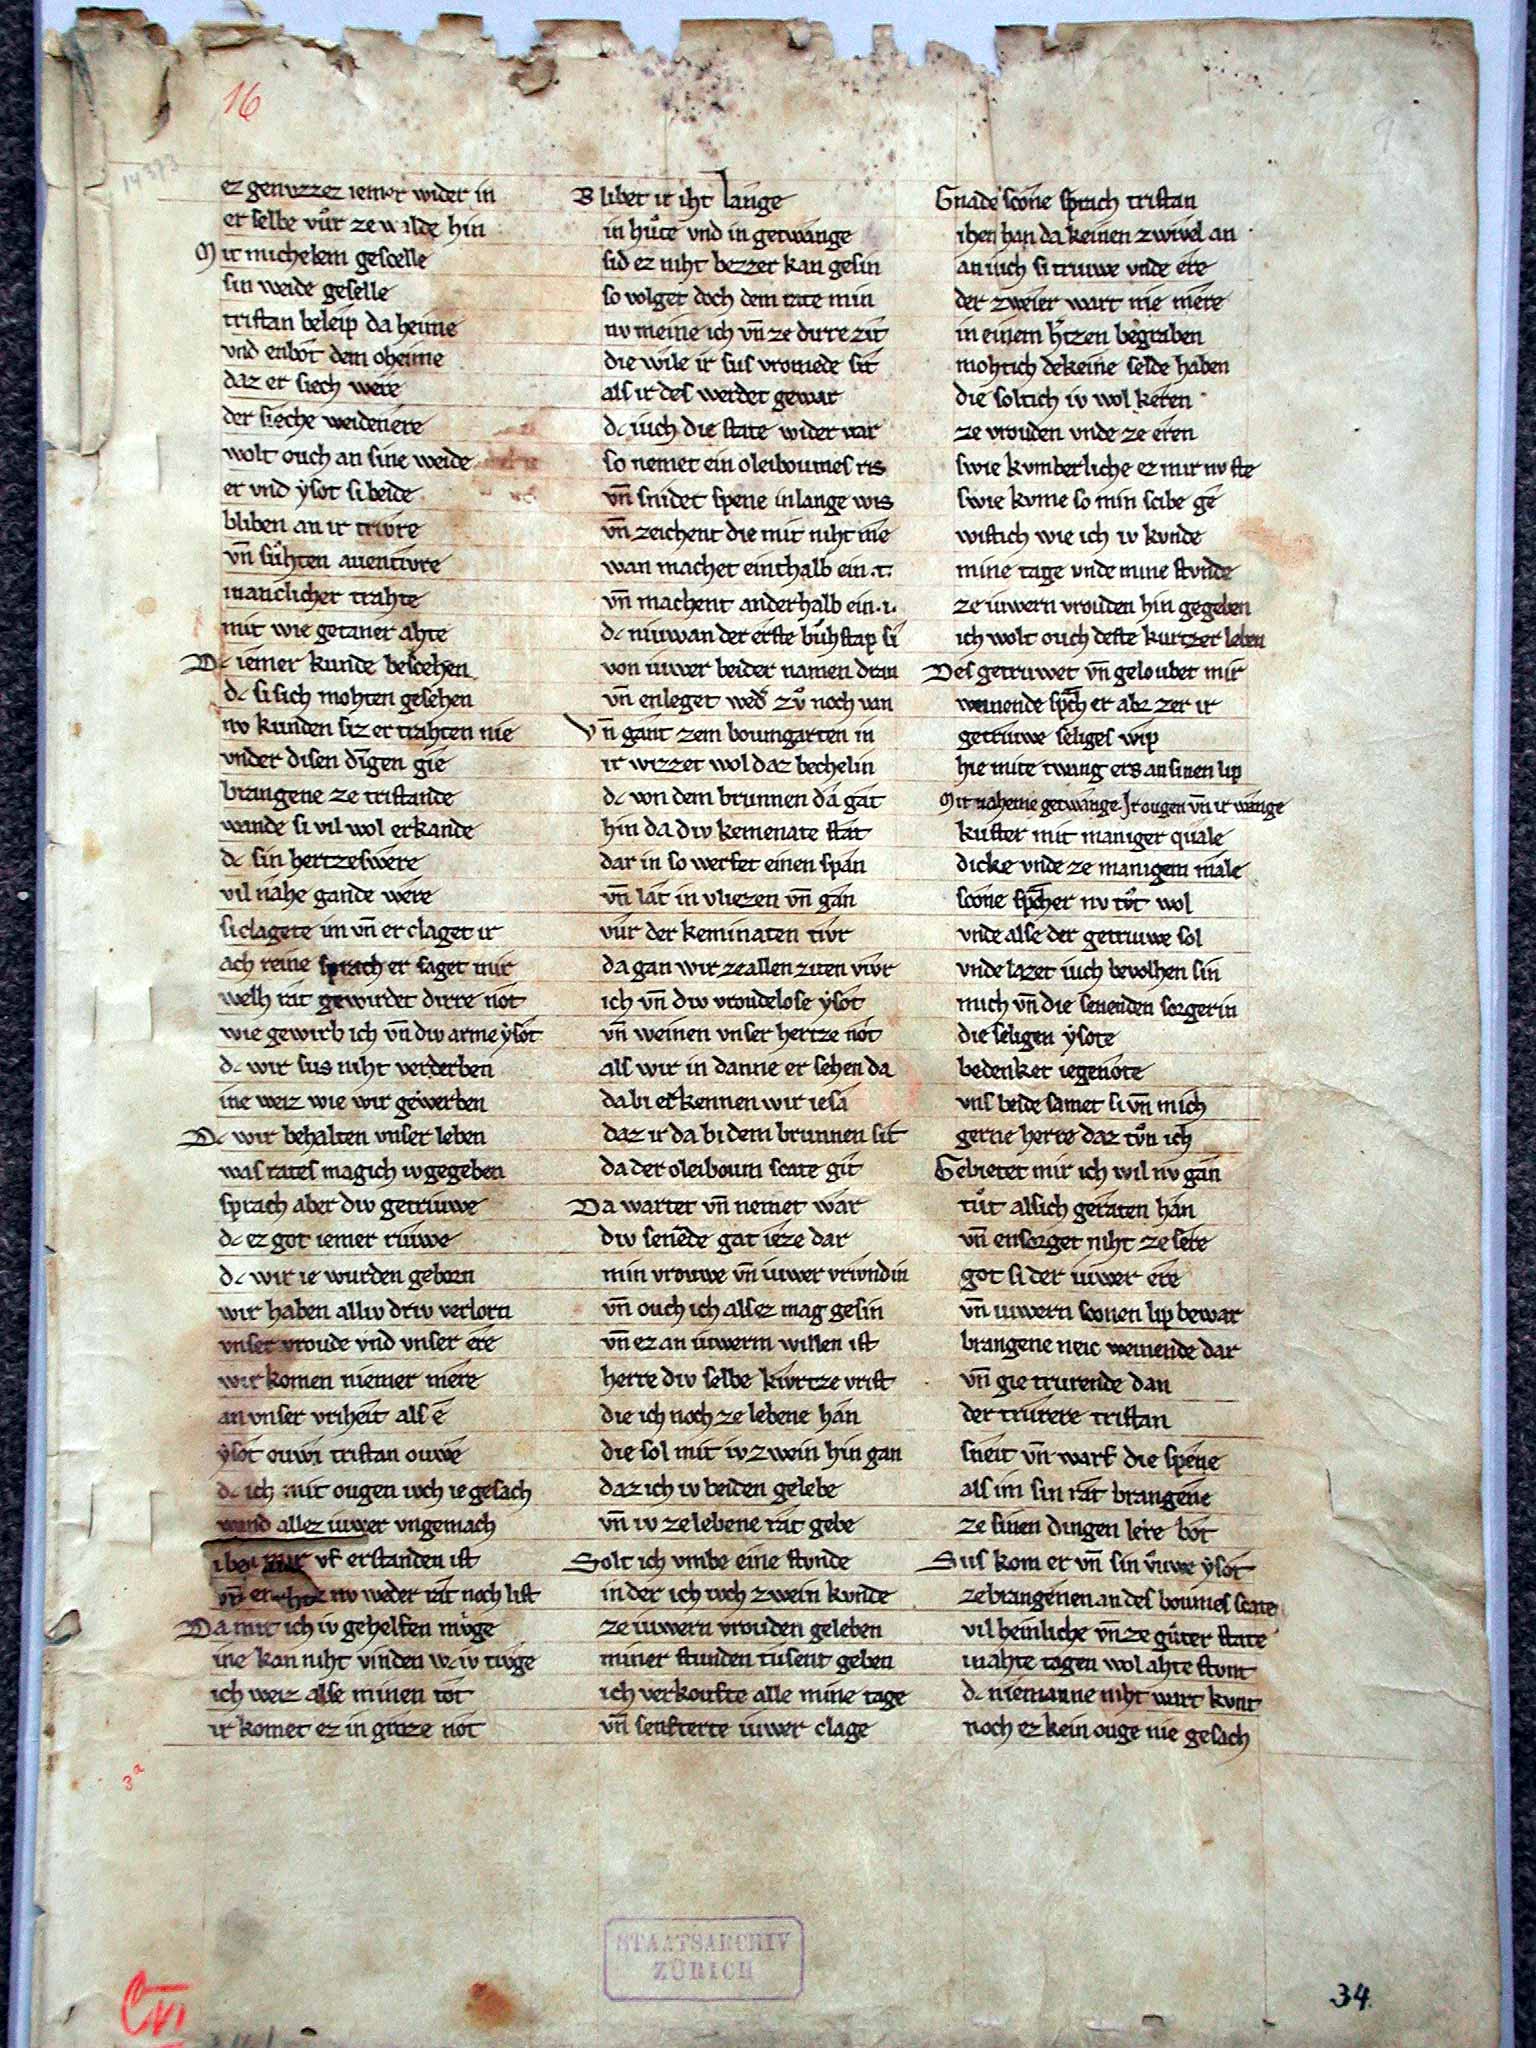 16
14373
ez genvzzez iemer wider in
er selbe vůr ze walde hin
Mit michelem gescelle
sin weide geselle
tristan beleip da heime
vnd enbot dem oheime
daz er siech were
der sieche weidenere
wolt ouch an sine weide
er vnd ẏsot si beide
bliben an ir trivre
vn̄ sůhten auentivre
manclicher trahte
mit wie getaner ahte
Dc iemer kunde bescehen
dc si sich mohten gesehen
nv kunden siz er trahten nie
vnder disen dīgen gie
brangene ze tristande
wande si vil wol erkande
dc sin hertzeswere
vil nahe gande were
si clagete im vn̄ er claget ir
ach reine sprach er saget mir
welh rat gewirdet dirre not
wie gewirb ich vn̄ div arme ẏsot
dc wir sus niht verderben
ine weiz wie wir gewerben
Dc wir behalten vnser leben
was rates mag ich iv gegeben
sprach aber div getriuwe
dc ez got iemer riuwe
dc wir ie wurden geborn
wir haben alliv driv verlorn
vnser vroude vnd vnser ere
wir komen niemer mere
an vnser vriheit als e
ẏsot ouwi tristan ouwe
dc ich mit ougen ivch ie gesach
wand allez iuwer vngemach
vf erstanden ist
vn̄ nv weder rat noch list
Da mit ich iv gehelfen mv̊ge
ine kan niht vinden wc iv tivge
ich weiz alse minen tot
ir komet ez in groze not
3a
Blibet ir iht lange
in hůte vnd in getwange
sid ez niht bezzer kan gesin
so volget doch dem rate min
nv meine ich vn̄ ze dirre zit
die wile ir sus vromede sit
als ir des werdet gewar
dc iuch die state wider var
so nemet ein oleiboumes ris
vn̄ snidet spene in lange wis
vn̄ zeichent die mit niht me
wan machet einthalb ein .t.
vn̄ machent anderhalb ein .i.
dc niuwan der erste bůhstap si
von iuwer beider namen dran
vn̄ enleget wed̓ zv̊ noch van
vn̄ gant zem boumgarten in
ir wizzet wol daz bechelin
dc von dem brunnen da gat
hin da div kemenate stat
dar in so werfet einen span
vn̄ lat in vliezen vn̄ gan
vur der keminaten tivr
da gan wir ze allen ziten vivr
ich vn̄ div vroudelose ẏsot
vn̄ weinen vnser hertze not
als wir in danne er sehen da
da bi erkennen wir iesa
daz ir da bi dem brunnen sit
da der oleiboum scate git
Da wartet vn̄ nemet war
div senēde gat ieze dar
min vrouwe vn̄ iuwer vrivndin
vn̄ ouch ich alsez mag gesin
vn̄ ez an iuwerm willen ist
herre div selbe kivrtze vrist
die ich noch ze lebene han
die sol mit iv zwein hin gan
daz ich iv beiden gelebe
vn̄ iv ze lebene rat gebe
Solt ich vmbe eine stvnde
in der ich ivch zwein kvnde
ze iuwern vrouden geleben
miner stunden tusent geben
ich verkoufte alle mine tage
vn̄ senfterte iuwer clage
Gnade scone sprach tristan
ihen han da keinen zwivel an
an iuch si truwe vnde ere
der zweier wart nie mere
in einem h̓tzen begraben
moht ich dekeine selde haben
die solt ich iv wol keren
ze vrouden vnde ze eren
swie kvmberliche ez mir nv ste
swie kvme so min scibe ge
wist ich wie ich iv kvnde
mine tage vnde mine stvnde
ze iuwern vrouden hin gegeben
ich wolt ouch deste kurtzer leben
Des getruwet vn̄ geloubet mir
weinende sp̄ch er abz zer ir
getruwe seliges wip
hie mite twang ers an sinen lip
Mit naheme getwange. Ir ougen vn̄ ir wange
kuster mit maniger quale
dicke vnde ze manigem male
scone sp̄cher nv tv̊t wol
vnde alse der getruwe sol
vnde lazet iuch bevolhen sin
mich vn̄ die senenden sorgerin
die seligen ẏsote
bedenket iegenote
vns beide samet si vn̄ mich
gerne herre daz tv̊n ich
Gebietet mir ich wil nv gan
tůt als ich geraten han
vn̄ ensorget niht ze sere
got si der iuwer ere
vn̄ iuwern sconen lip bewar
brangene neic weinende dar
vn̄ gie trurende dan
der trurere tristan
sneit vn̄ warf die spene
als im sin rat brangene
ze sinen dingen lere bot
Sus kom er vn̄ sin vrůwe ẏsot
ze brangenen an des boumes scate
vil heinliche vn̄ ze gůter state
in ahte tagen wol ahte stvnt
dc niemanne niht wart kvnt
noch ez kein ouge nie gesach
STAATSARCHIV
ZÜRICH
CVI
34.